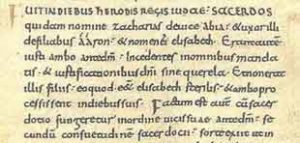 FUIT IN DIEBUS HERODIS REGIS IUDAE: SACERDOS
quidam nomine zacharias deuice abia· & uxor illi
defiliabus ááron· & nomen ei elisabeth. Erantautem
iusti ambo ante dm̄· Incedentes inomnibus manda
tis· & iustificationibus dn̄i sine querela· Etnonerat
illis filius· eoquod e& elisabeth sterilis· & ambo pro
cessissent indiebussuis· Factum est autē cū sacer
dotio fungeretur inordine uicissuae antedm̄· se
cundū consuetudinē sacerdotii· sorte exiit ut in